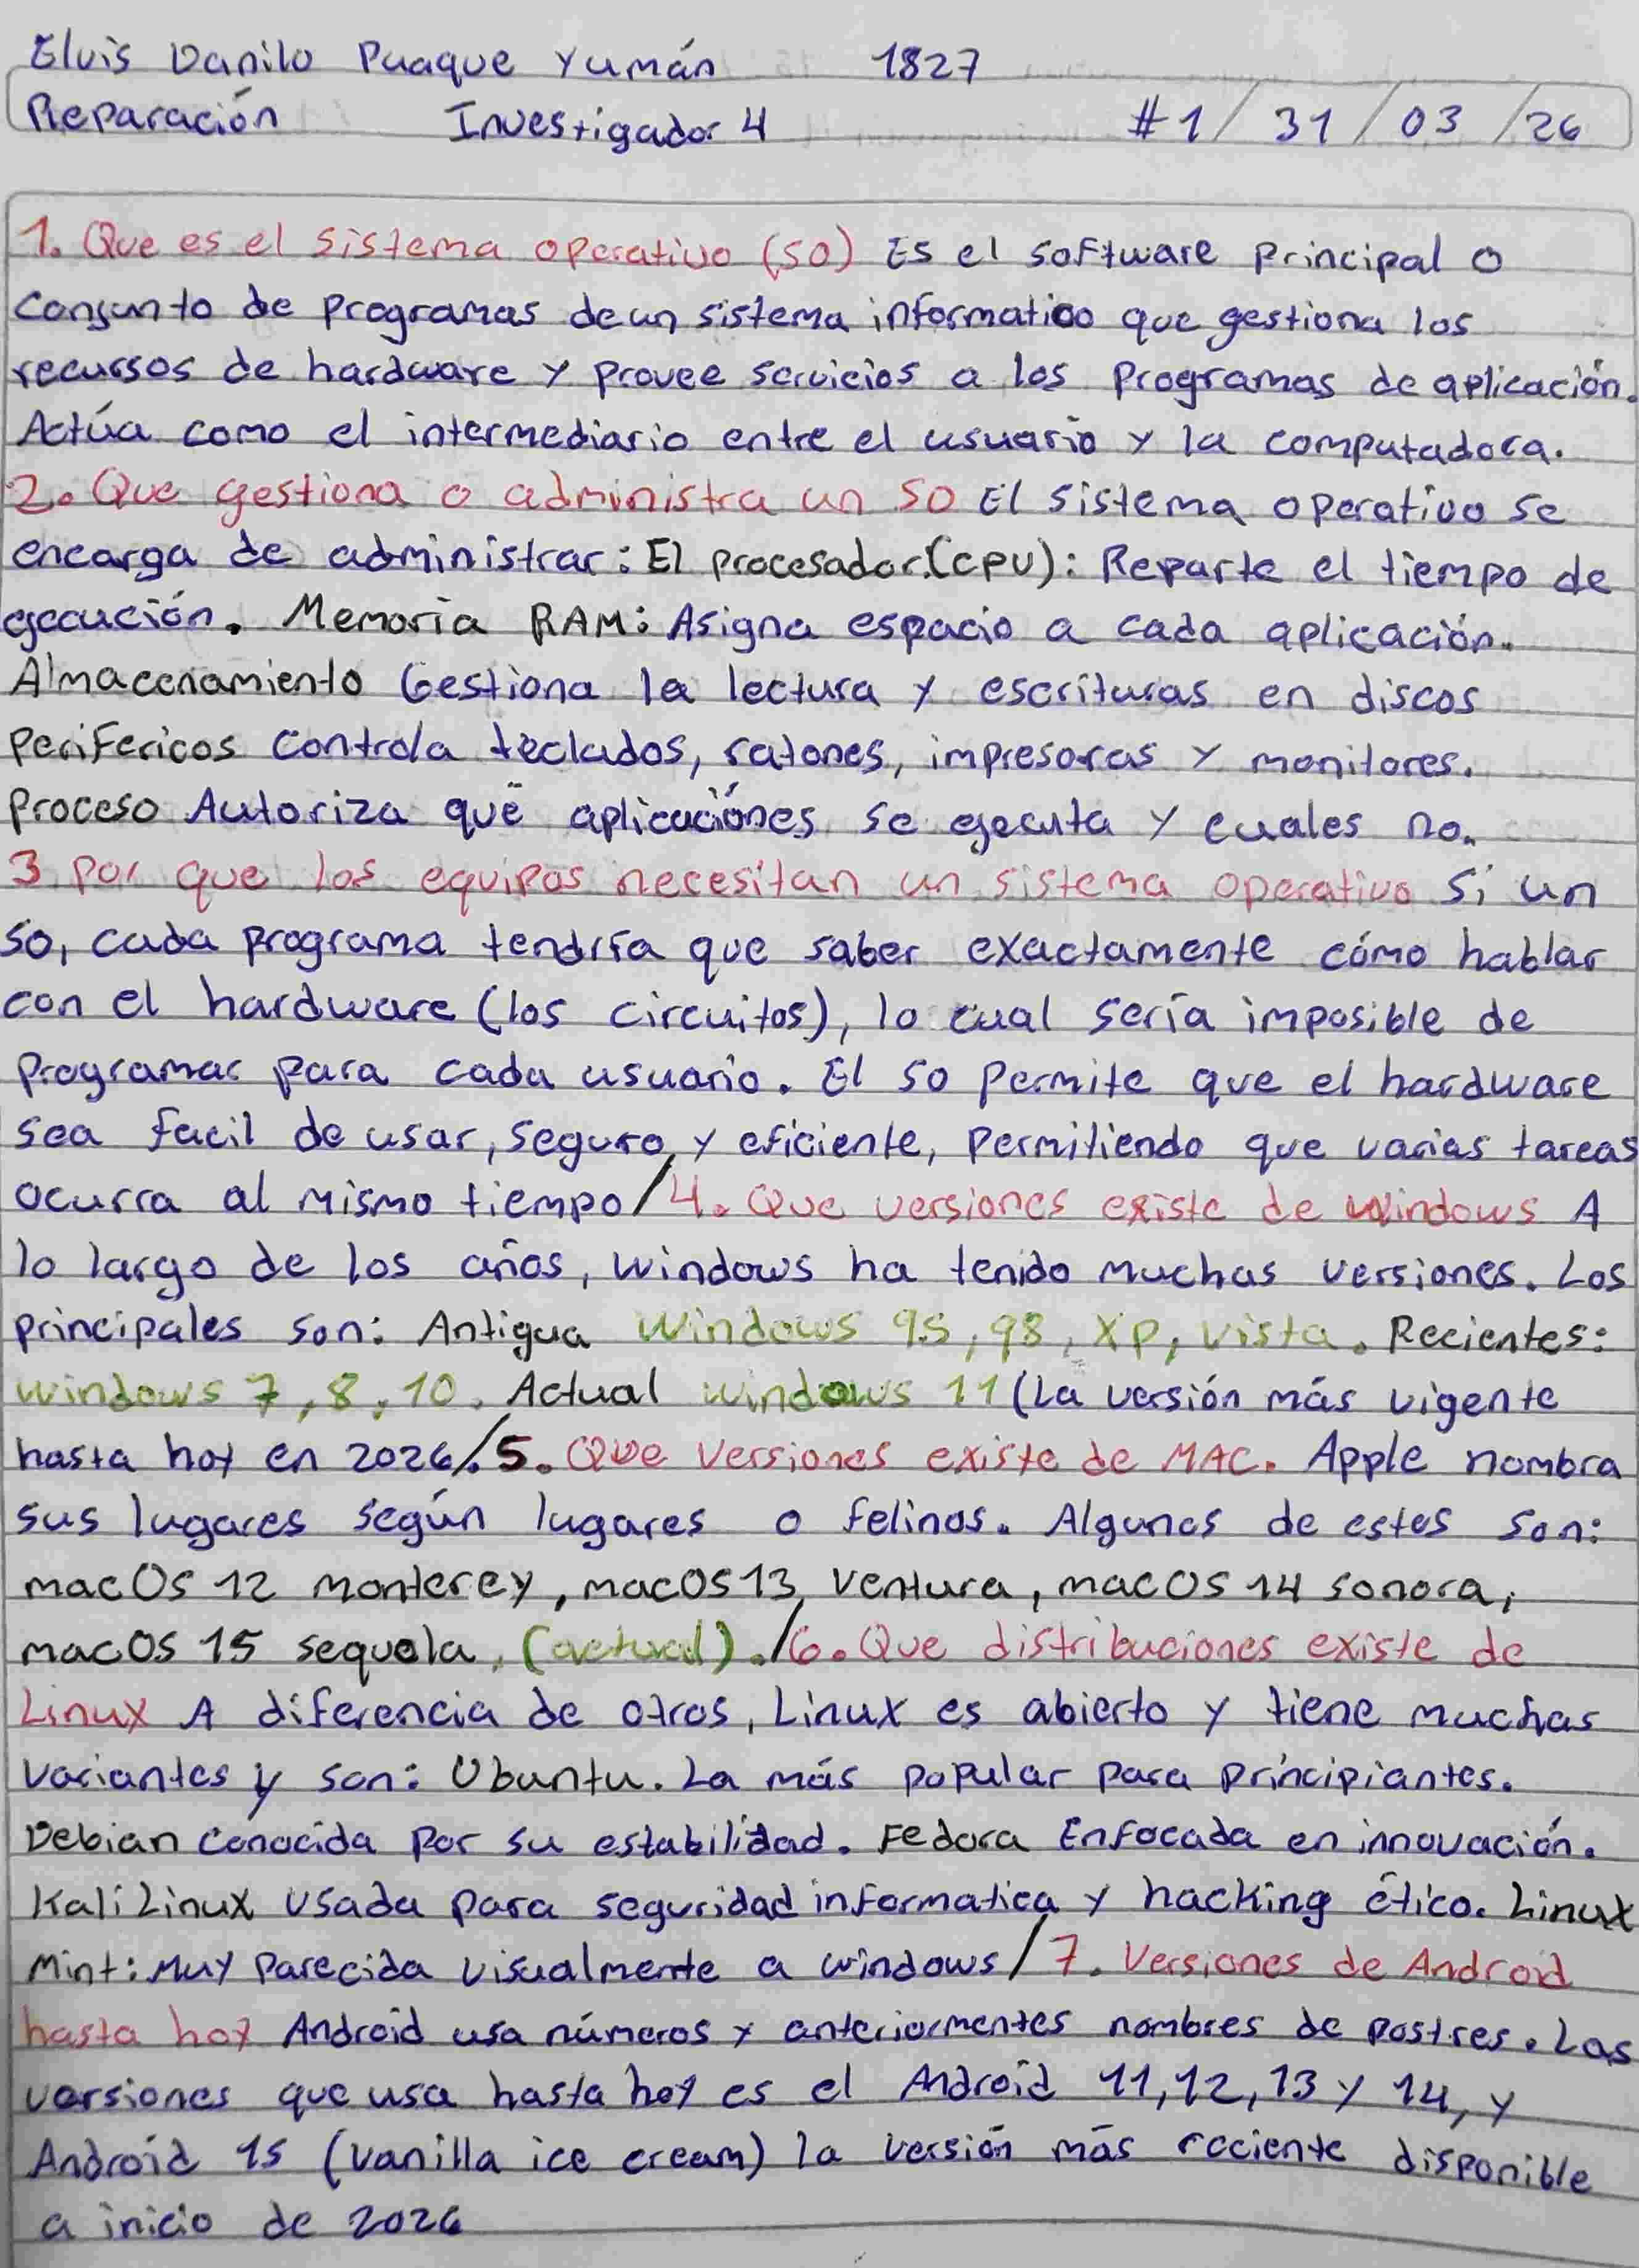 Elvis Danilo Puaque Yumán 1827
Reparación Investigador 4 #1/ 31 / 03 /26
1. Que es el sistema operativo (SO) Es el software principal o
conjunto de programas de un sistema informatico que gestiona los
recursos de hardware y provee servicios a los programas de aplicación.
Actúa como el intermediario entre el usuario y la computadora.
2. Que gestiona o administra un SO El sistema operativo se
encarga de administrar: El procesador.(CPU): Reparte el tiempo de
ejecución. Memoria RAM: Asigna espacio a cada aplicación.
Almacenamiento Gestiona la lectura y escrituras en discos
Perifericos controla teclados, ratones, impresoras y monitores.
Proceso Autoriza qué aplicaciónes se ejecuta y cuales no.
3 por que los equipos necesitan un sistema operativo Si un
so, cada programa tendría que saber exactamente cómo hablar
con el hardware (los circuitos), lo cual sería imposible de
programar para cada usuario. El so permite que el hardware
sea facil de usar, seguro y eficiente, permitiendo que varias tareas
ocurra al mismo tiempo/4. Que versiones existe de windows A
lo largo de los años, windows ha tenido muchas versiones. Los
principales son: Antigua Windows 95, 98, XP, vista. Recientes:
windows 7, 8, 10. Actual windows 11 (La versión más vigente
hasta hoy en 2026/.5. Que versiones existe de MAC. Apple nombra
sus lugares según lugares o felinos. Algunos de estos son:
macOS 12 monterey, macOS 13, ventura, macOS 14 sonora,
macOS 15 sequola, (actual)./6. Que distribuciones existe de
Linux A diferencia de otros, Linux es abierto y tiene muchas
variantes y son: Ubuntu. La más popular para principiantes.
Debian conocida por su estabilidad. Fedora Enfocada en innovación.
Kali Linux usada para seguridad informatica y hacking ético. Linux
Mint: Muy parecida visualmente a windows/7. Versiones de Android
hasta hoy Android usa números y anteriormentes nombres de postres. Las
versiones que usa hasta hoy es el Android 11, 12, 13 y 14, y
Android 15 (vanilla ice cream) la versión más reciente disponible
a inicio de 2026